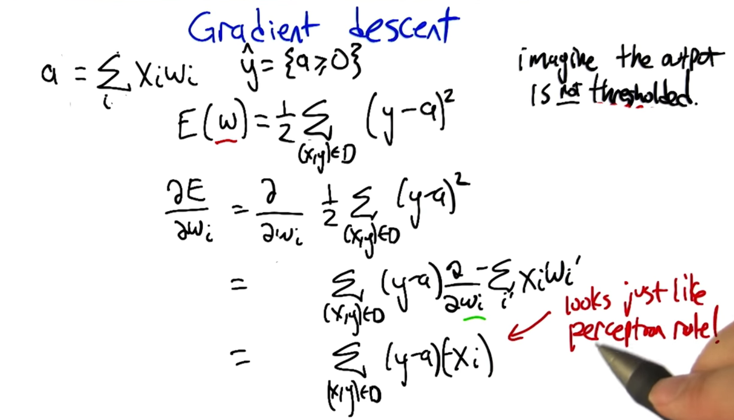 Gradient descent
a = ∑_i x_i w_i    ŷ = {a ≥ 0}
imagine the output
is not thresholded.
E(w) = 1/2 ∑_{(x,y)∈D} (y-a)²
∂E/∂w_i = ∂/∂w_i 1/2 ∑_{(x,y)∈D} (y-a)²
= ∑_{(x,y)∈D} (y-a) ∂/∂w_i -∑_{i'} x_i w_i'
looks just like
perceptron rule!
= ∑_{(x,y)∈D} (y-a)(-x_i)